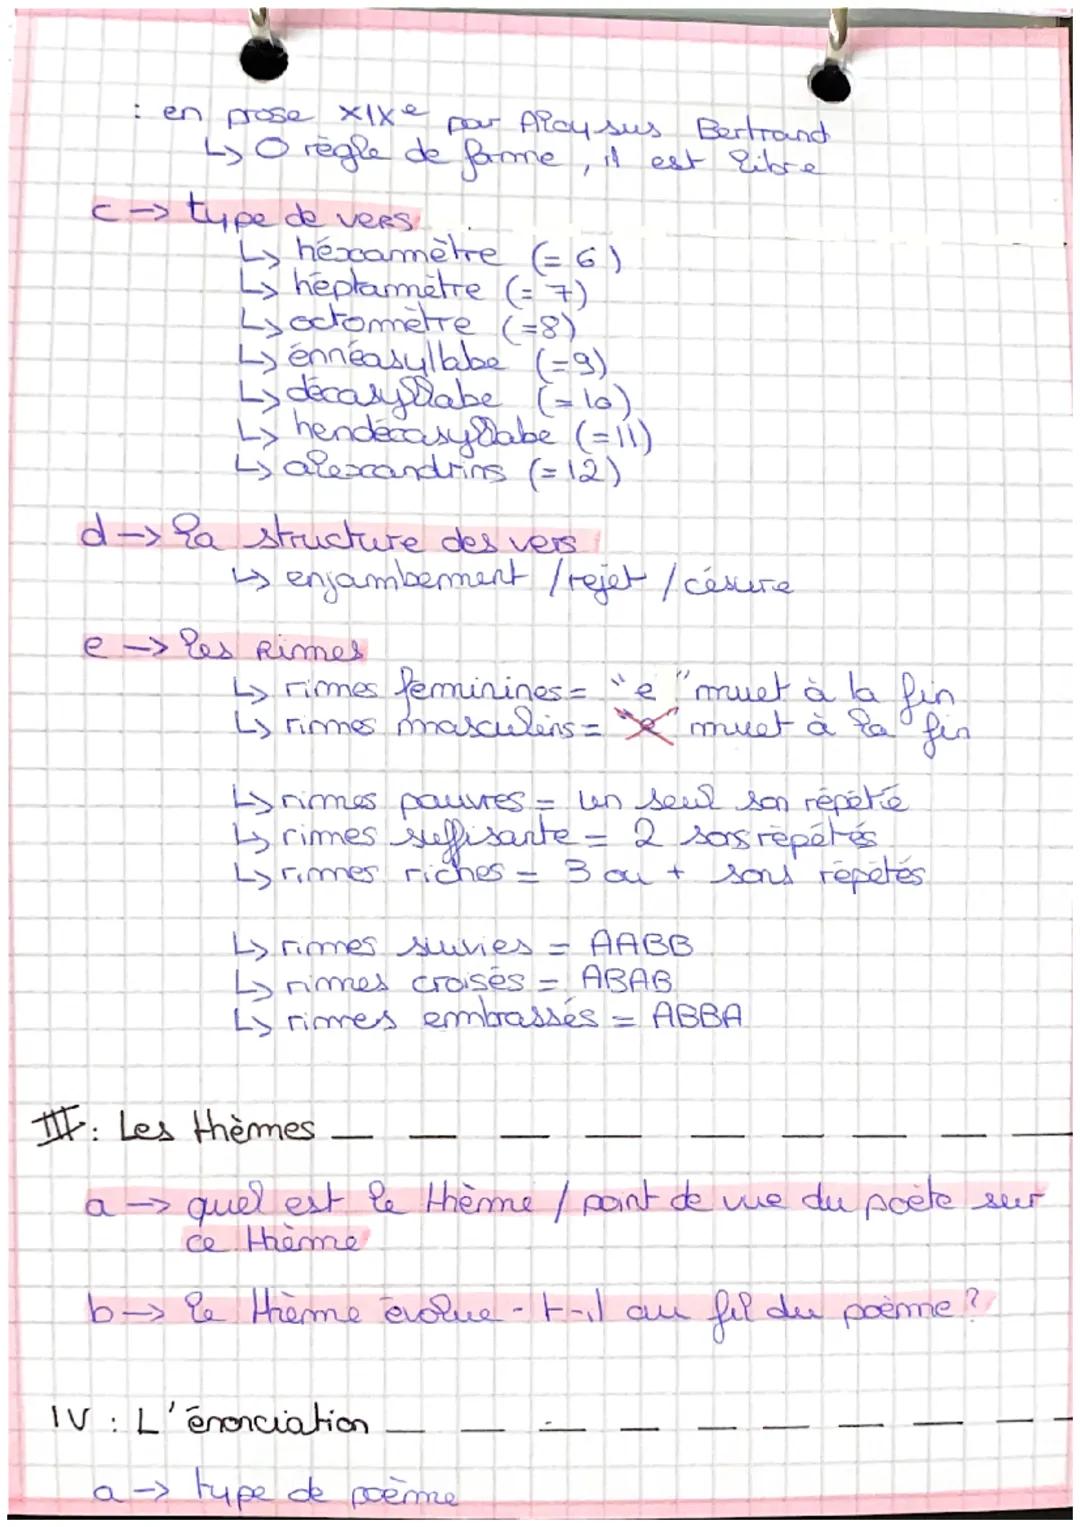 : en prose XIXe par Aloysus Bertrand
↳ 0 règle de forme, il est libre
c → type de vers
↳ héxamètre (= 6)
↳ heptamètre (= 7)
↳ octomètre (=8)
↳ énnéasyllabe (=9)
↳ décasyllabe (=10)
↳ hendécasyllabe (=11)
↳ alexandrins (=12)
d → la structure des vers
↳ enjambement / rejet / césure
e → les Rimes
↳ rimes féminines = "e" muet à la fin
↳ rimes masculins = "e" muet à la fin
↳ rimes pauvres = un seul son répété
↳ rimes suffisante = 2 sons répétés
↳ rimes riches = 3 ou + sons répétés
↳ rimes suivies = AABB
↳ rimes croisés = ABAB
↳ rimes embrassés = ABBA
III : Les thèmes
a → quel est le thème / point de vue du poète sur
ce thème
b → le thème évolue-t-il au fil du poème ?
IV : L'énonciation
a → type de poème